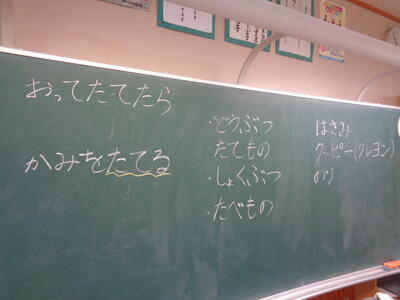 おってたてたら
かみをたてる
・どうぶつ
・たてもの
・しょくぶつ
・たべもの
はさみ
クーピー(クレヨン)
のり